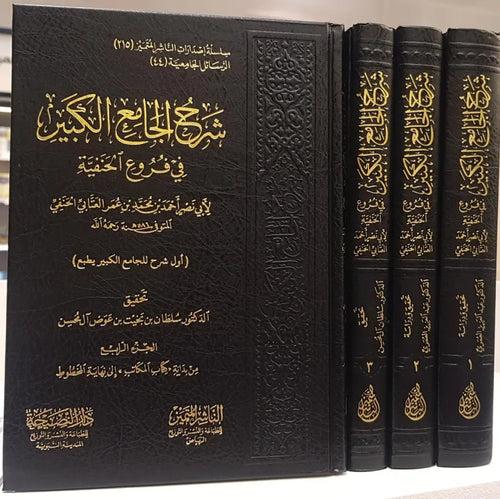 سلسلة إصدارات الناشر المتميز (٢١٥)
الرسائل الجامعية (٤٤)
شرح الجامع الكبير
في فروع الحنفية
لأبي نصر أحمد بن محمد بن عمر العتابي الحنفي
المتوفى ٥٨٦ سنة رحمه الله
(أول شرح للجامع الكبير يطبع)
تحقيق
الدكتور سلطان بن بخيت بن عوض آل محسن
الجزء الرابع
من بداية «كتاب المكاتب» إلى نهاية المخطوط
الناشر المتميز
للطباعة والنشر والتوزيع
الرياض
دار النصيحة
للطباعة والنشر والتوزيع
المدينة النبوية
شرح الجامع الكبير
في فروع الحنفية
لأبي نصر أحمد
العتابي الحنفي
تحقيق
الدكتور سلطان آل محسن
٣
شرح الجامع الكبير
في فروع الحنفية
لأبي نصر أحمد
العتابي الحنفي
تحقيق ودراسة
الدكتور عبد العزيز
٢
شرح الجامع الكبير
في فروع الحنفية
لأبي نصر أحمد
العتابي الحنفي
تحقيق ودراسة
الدكتور عبد العزيز
١